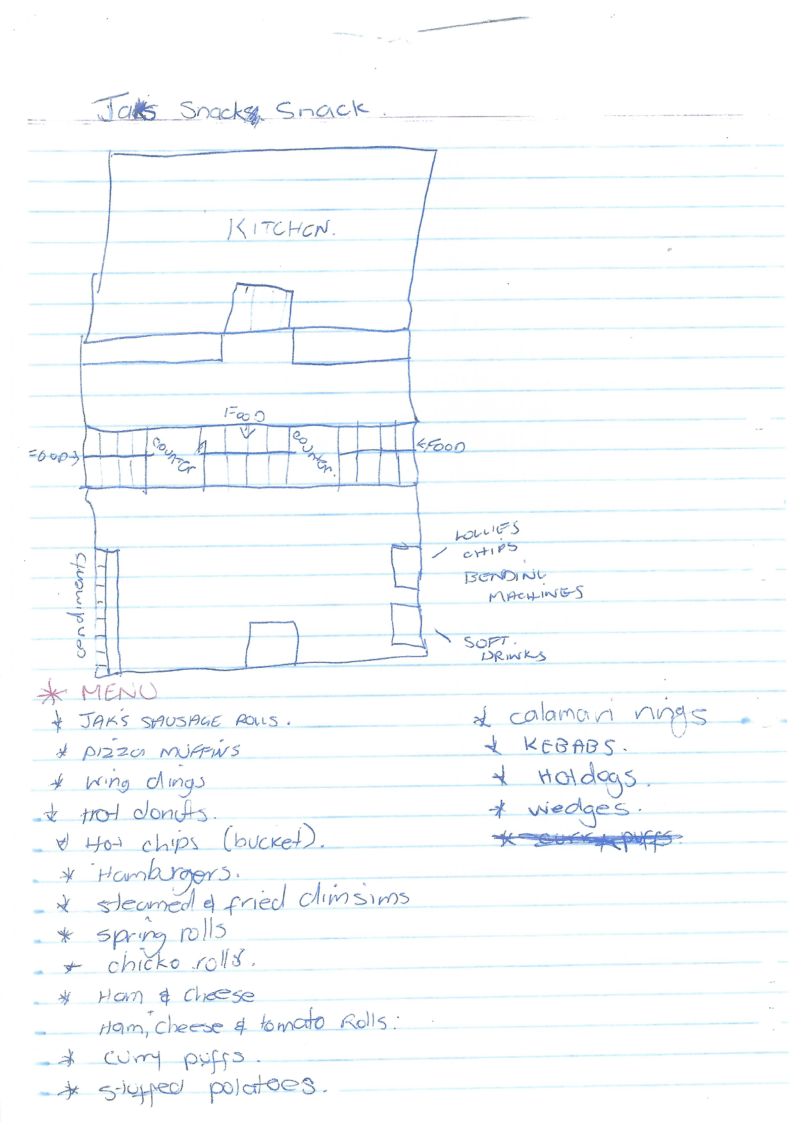 Jaks Snacks Snack.
KITCHEN.
FOOD
FOOD
counter
counter.
FOOD
LOLLIES
CHIPS
BENDING
MACHINES
condiments
SOFT.
DRINKS
* MENU
* JAK'S SAUSAGE ROLLS.
* PIZZA MUFFINS
* wing dings
* Hot donuts.
* Hot chips (bucket).
* Hamburgers.
* steamed & fried dimsims
* spring rolls
* chicko rolls.
* Ham & cheese
Ham, cheese & tomato Rolls.
* curry puffs.
* stuffed potatoes.
* calamari rings
* KEBABS.
* Hotdogs.
* wedges.
* curry puffs.